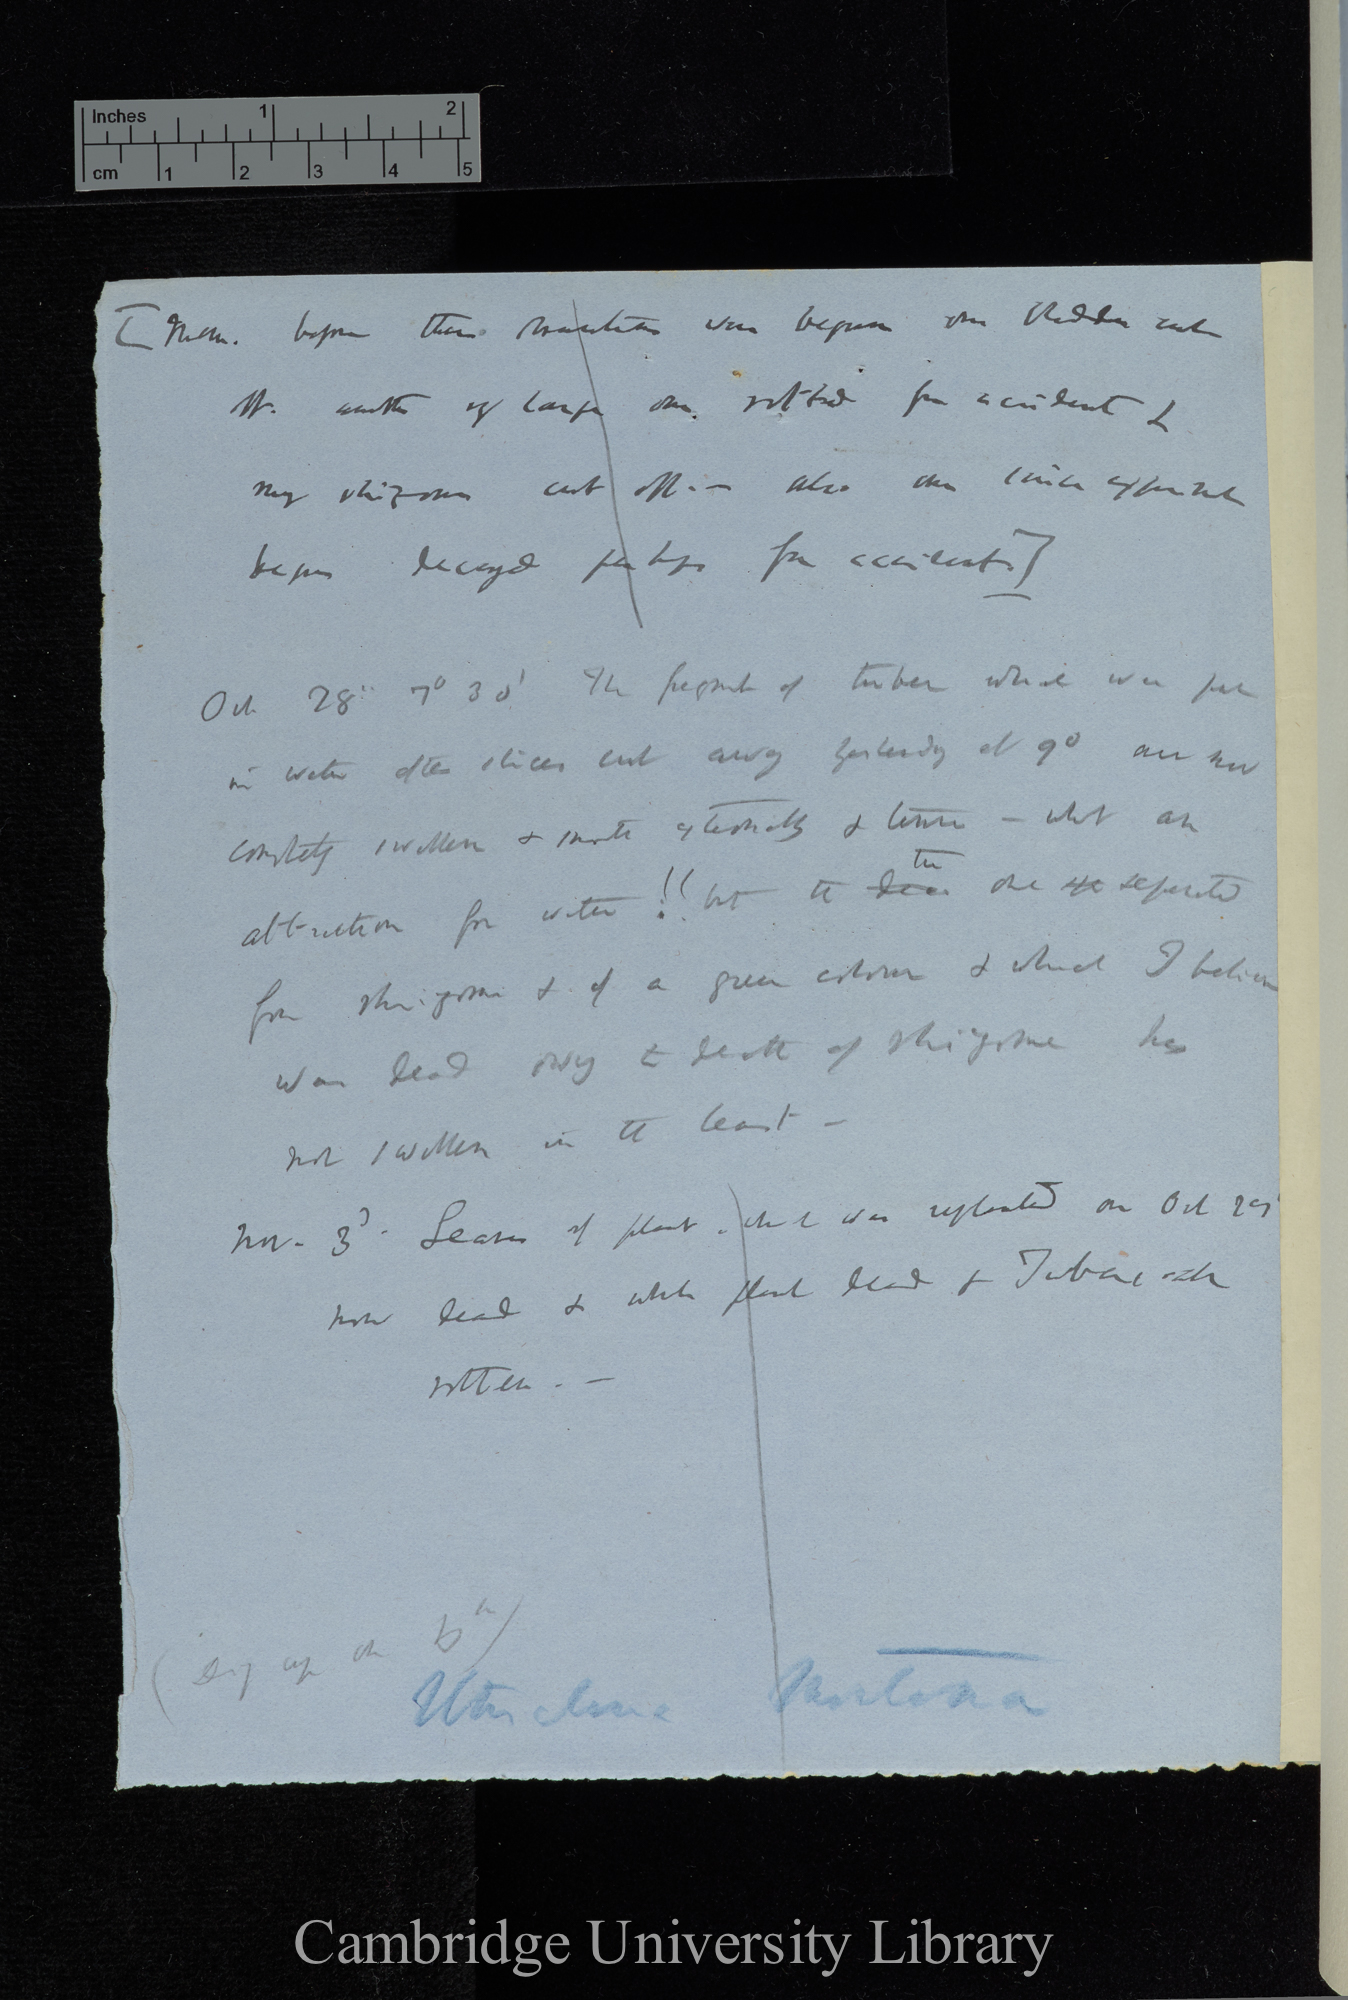 Inches 1 2
cm 1 2 3 4 5
[Mem. before these was begun one bladder cut
off. another of large one rotted from accident &
my rhizomes cut off.— also one since
began decayed perhaps from accident.]
Oct 28" 7° 30' The fragment of tuber which was put
in water after slices cut away yesterday at 9° are now
completely swollen & smooth externally & tense — what an
attraction for water!! but the the one separated
from rhizome & of a green colour & which I believe
was dead owing to death of rhizome has
not swollen in the least —
Nov. 3d. Leaves of plant which was replanted on Oct
now dead & whole plant dead & Tubers
rotten. —
(Dig up on
Utricularia Montana
Cambridge University Library